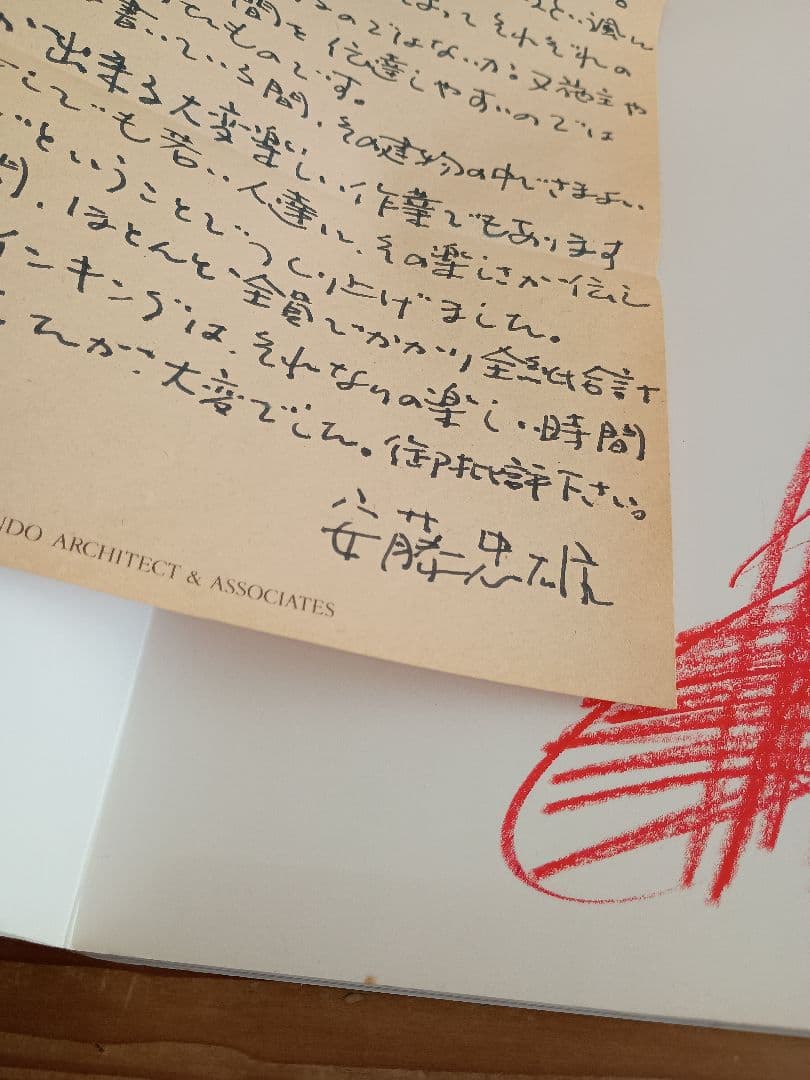 よってそれぞれの
のではないか？又施主や
間を伝達しやすいのでは
てものです。
書いている間、その建物の中でさまよい
が出来る大変楽しい作業でもあります
こしでも若い人達に、その楽しさが伝し
ということでつくり上げました。
、ほとんど全員でかかり全
インキングは、それなりの楽しい時間
が、大変でした。御批評下さい。
安藤忠雄
NDO ARCHITECT & ASSOCIATES